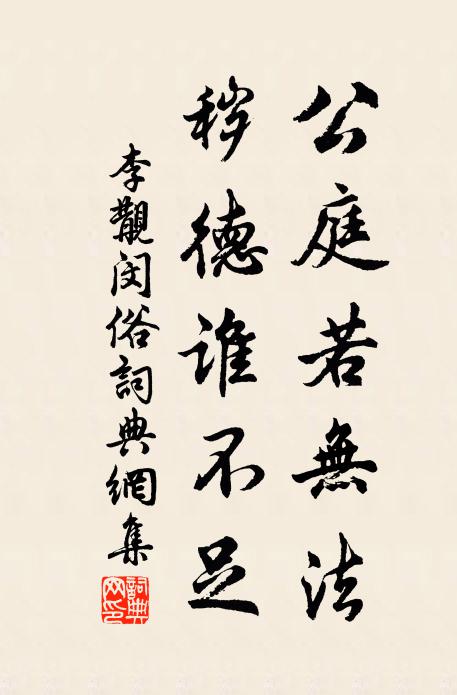 公庭若無法
秽德誰不足
李覯閔俗詞典網集
詞典网印